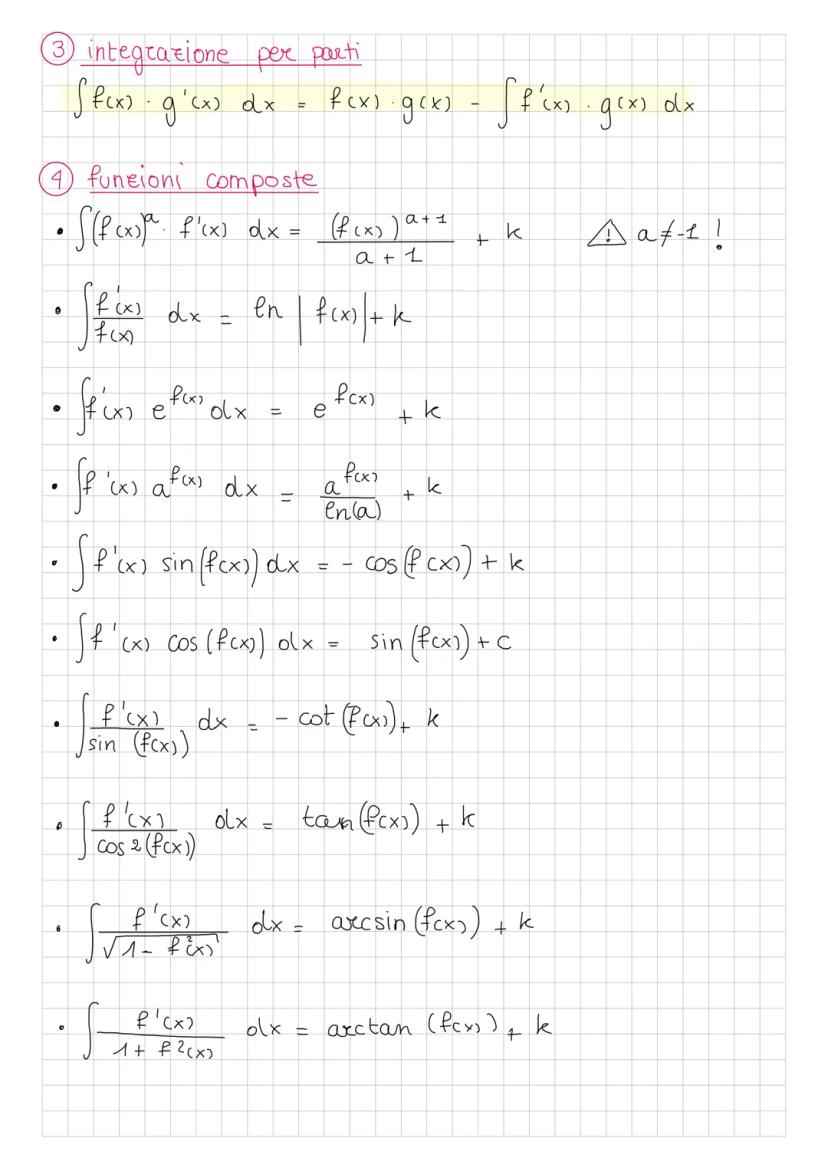 ③ integrazione per parti
∫ f(x) · g'(x) dx = f(x) · g(x) - ∫ f'(x) · g(x) dx
④ funzioni composte
• ∫ (f(x))^a · f'(x) dx = (f(x))^(a+1) / (a+1) + k ⚠ a ≠ -1 !
• ∫ f'(x) / f(x) dx = ln |f(x)| + k
• ∫ f'(x) e^f(x) dx = e^f(x) + k
• ∫ f'(x) a^f(x) dx = a^f(x) / ln(a) + k
• ∫ f'(x) sin(f(x)) dx = - cos(f(x)) + k
• ∫ f'(x) cos(f(x)) dx = sin(f(x)) + c
• ∫ f'(x) / sin (f(x)) dx = - cot(f(x)) + k
• ∫ f'(x) / cos2(f(x)) dx = tan(f(x)) + k
• ∫ f'(x) / √(1 - f²(x)) dx = arcsin(f(x)) + k
• ∫ f'(x) / (1 + f²(x)) dx = arctan (f(x)) + k